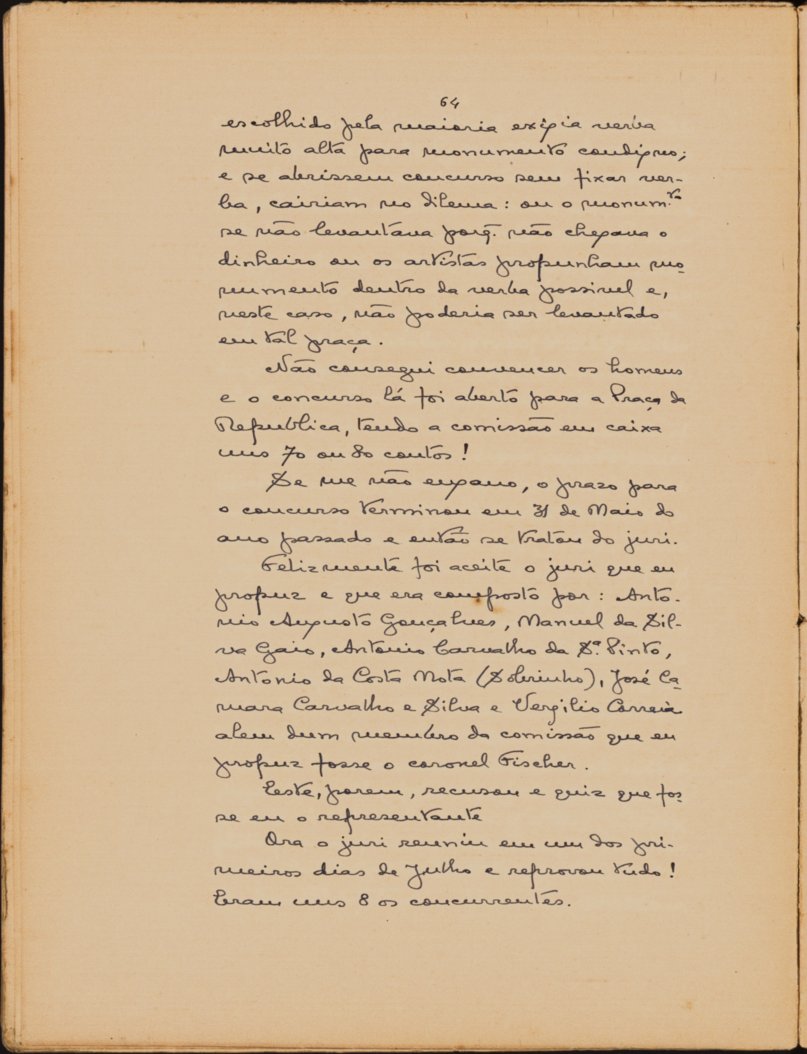 64
escolhido pela maioria exigia verba
muito alta para monumento condigno;
e se abrissem concurso sem fixar ver-
ba, cairiam no dilema: ou o monum.to
se não levantava porq. não chegava o
dinheiro ou os artistas propunham mo-
numento dentro da verba possivel e,
neste caso, não poderia ser levantado
em tal praça.
Não consegui convencer os homens
e o concurso lá foi aberto para a Praça da
Republica, tendo a comissão em caixa
uns 70 ou 80 contos!
Se me não engano, o prazo para
o concurso terminou em 31 de Maio do
ano passado e então se tratou do juri.
Felizmente foi aceite o juri que eu
propuz e que era composto por: Anto-
nio Augusto Gonçalves, Manuel da Sil-
va Gaio, Antonio Carvalho da S.ª Pinto,
Antonio da Costa Mota (Sobrinho), José Ca-
mara Carvalho e Silva e Vergilio Correia
alem dum membro da comissão que eu
propuz fosse o coronel Fischer.
Este, porem, recusou e quiz que fos-
se eu o representante
Ora o juri reuniu em um dos pri-
meiros dias de Julho e reprovou tudo!
Eram uns 8 os concurrentes.